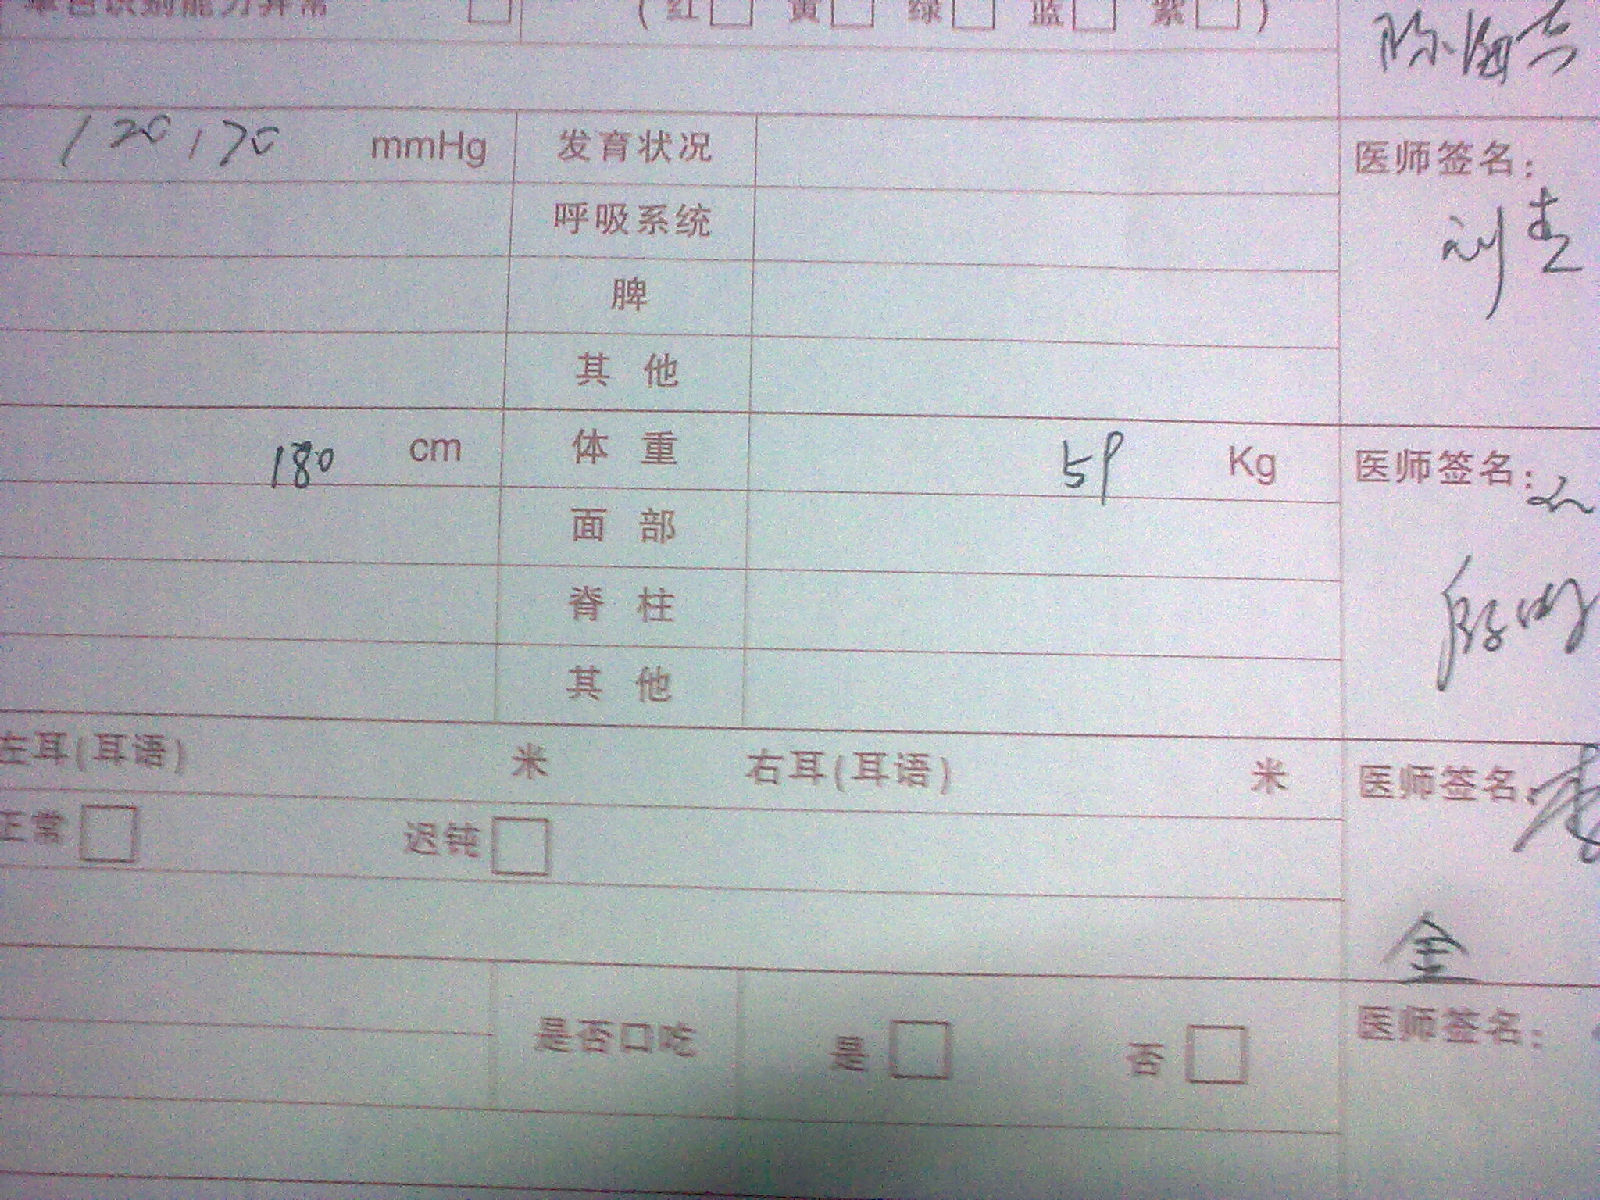 单色识别能力异常 (红 黄 绿 蓝 紫)
120/70 mmHg 发育状况 医师签名:
呼吸系统
脾
其他
180 cm 体重 59 Kg 医师签名:
面部
脊柱
其他
左耳(耳语) 米 右耳(耳语) 米 医师签名:
正常 迟钝
全
是否口吃 是 否 医师签名: